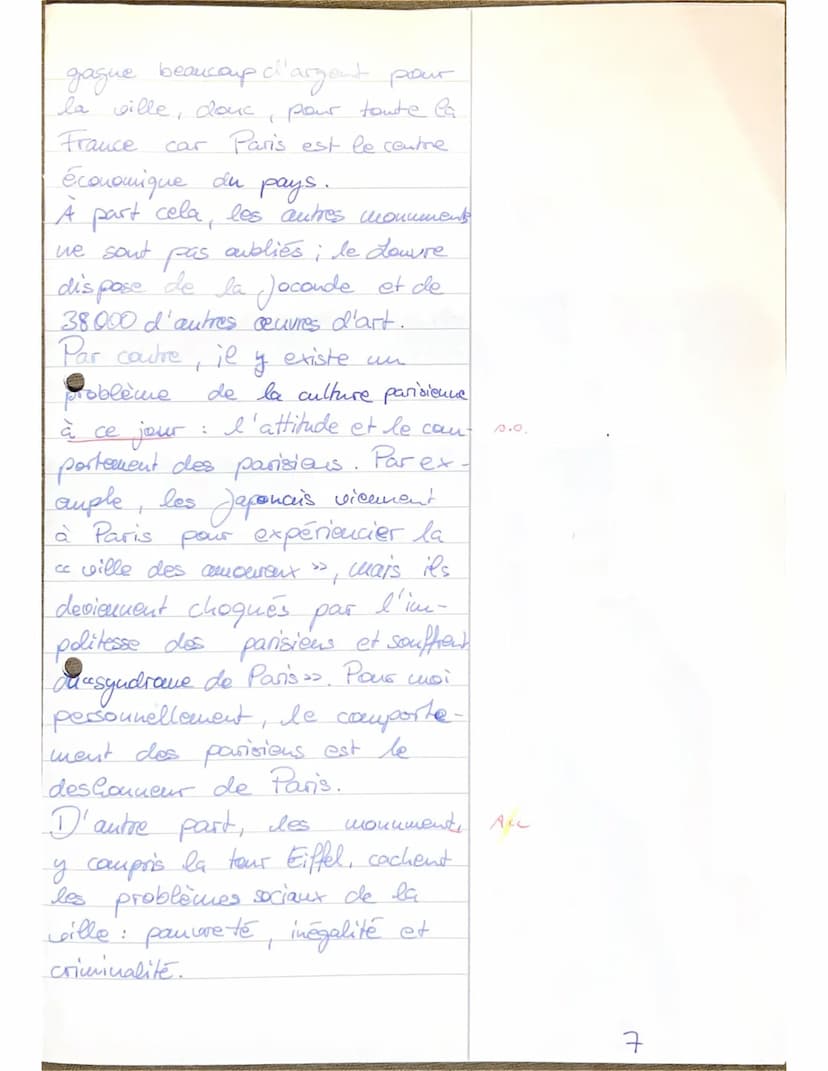 gagne beaucoup d'argent pour
la ville, donc, pour toute la
France car Paris est le centre
économique du pays.
À part cela, les autres monuments
ne sont pas oubliés ; le Louvre
dispose de la Joconde et de
38000 d'autres œuvres d'art.
Par contre, il y existe un
problème de la culture parisienne
à ce jour : l'attitude et le com-
portement des parisiens. Par ex-
ample, les Japonais viennent
à Paris pour expériencier la
« ville des amoureux », mais ils
deviennent choqués par l'im-
politesse des parisiens et souffrent
du «syndrome de Paris». Pour moi
personnellement, le comporte-
ment des parisiens est le
deshonneur de Paris.
D'autre part, les monuments,
y compris la tour Eiffel, cachent
les problèmes sociaux de la
ville : pauvreté, inégalité et
criminalité.
7